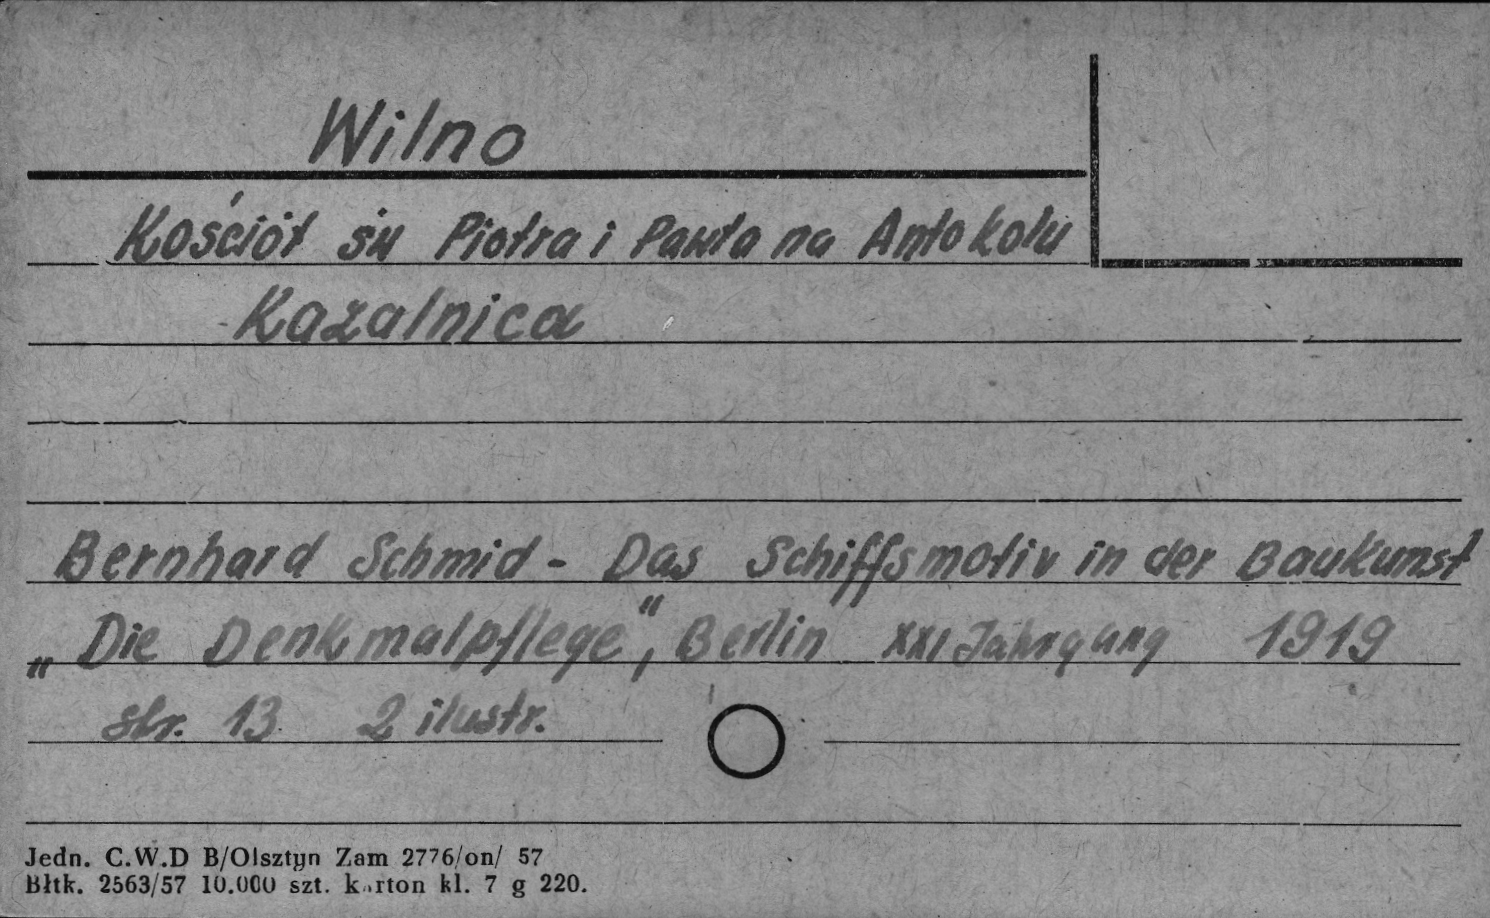 Wilno
Kościół św Piotra i Pawła na Antokolu
Kazalnica
Bernhard Schmid - Das Schiffsmotiv in der Baukunst
„Die Denkmalpflege", Berlin XXI Jahrgang 1919
str. 13 2 ilustr.
Jedn. C.W.D B/Olsztyn Zam 2776/on/ 57
Błtk. 2563/57 10.000 szt. karton kl. 7 g 220.